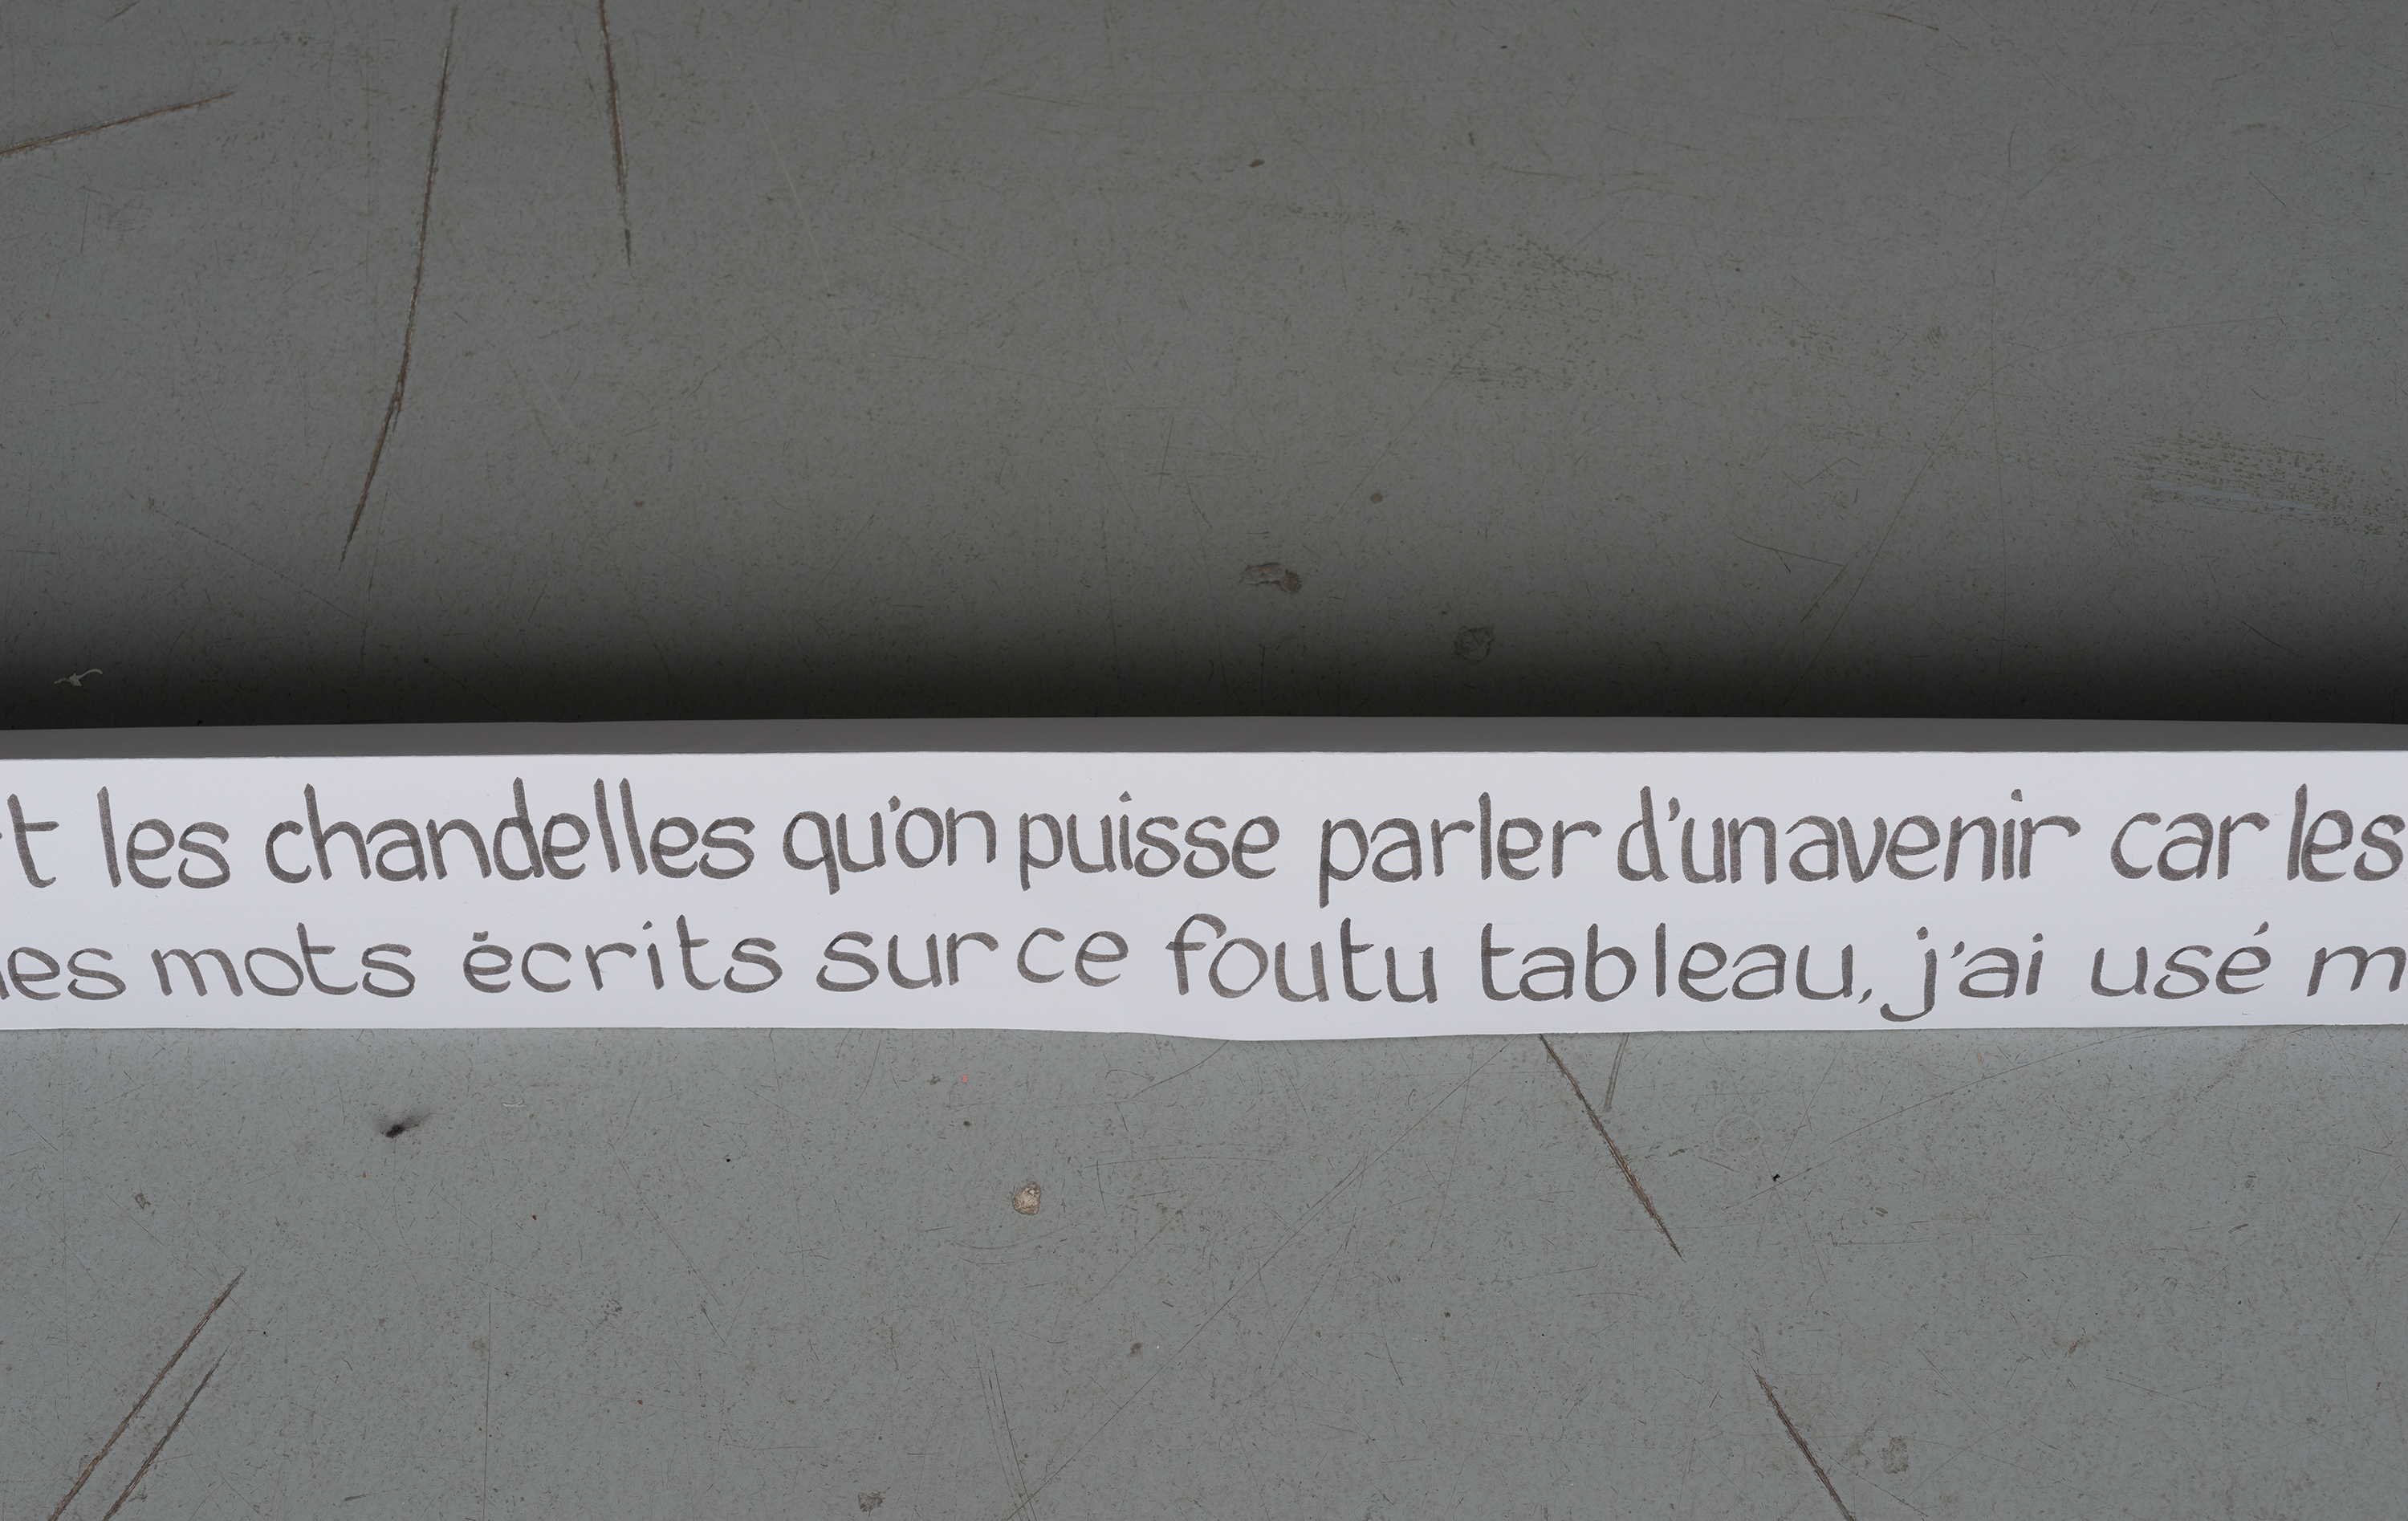 les chandelles qu'on puisse parler d'un avenir car les
mots écrits sur ce foutu tableau, j'ai usé